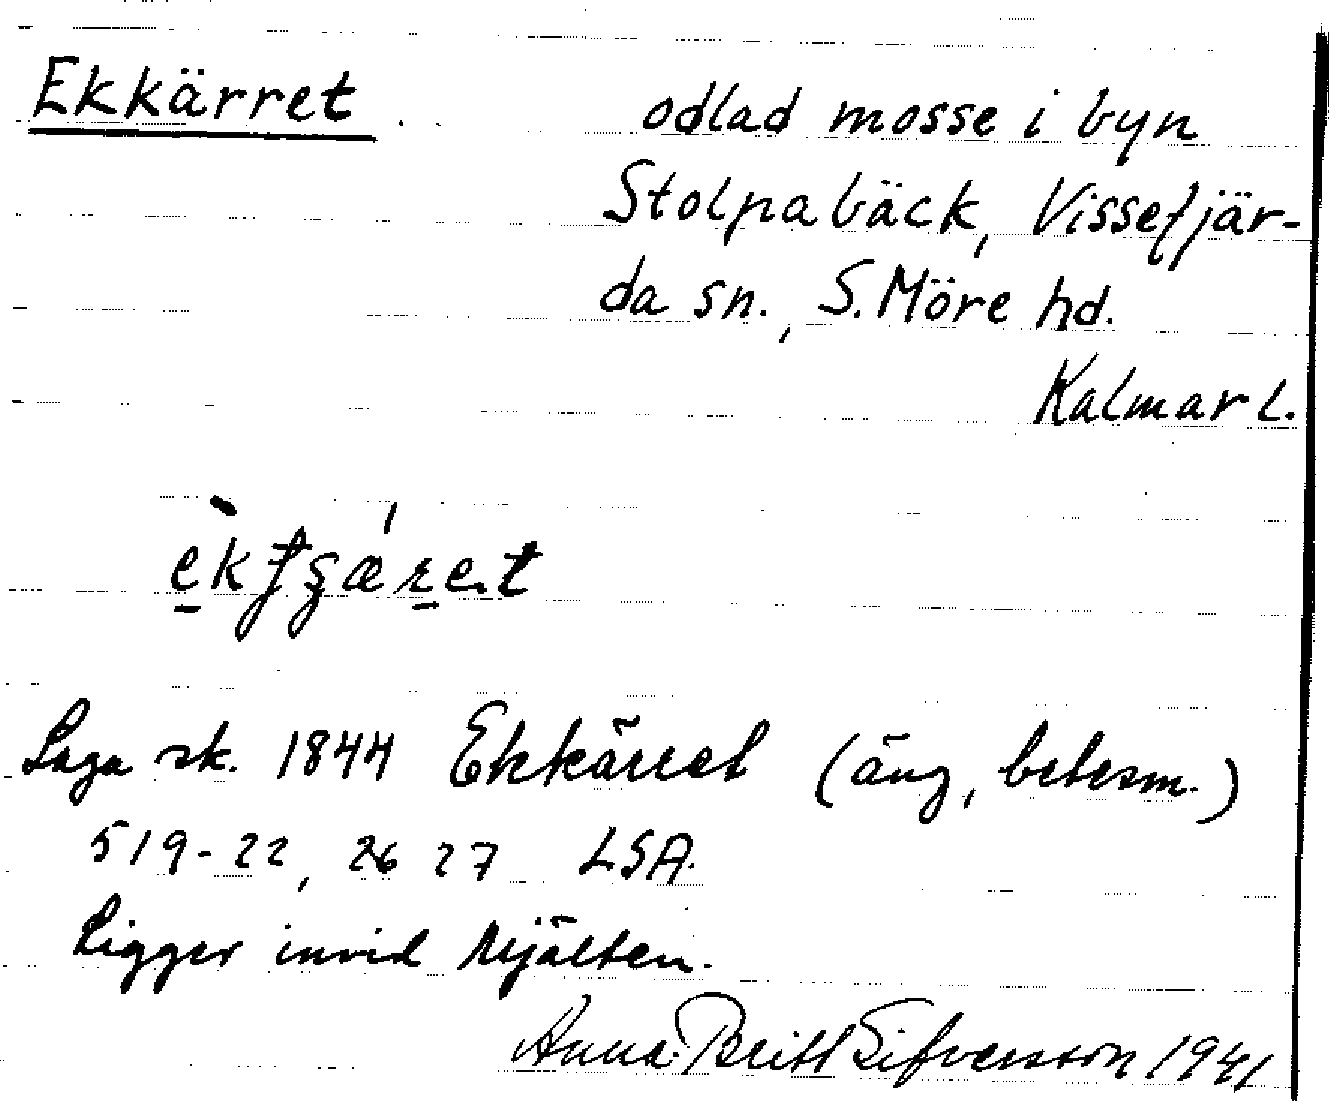 Ekkärret
odlad mosse i byn
Stolpabäck, Vissefjär-
da sn., S. Möre hd.
Kalmar l.
Laga sk. 1844 Ekkärret (äng, betesm.)
519-22, 26 27 LSA.
Ligger invid Mjälten.
Anna Britt Sifversson 1941